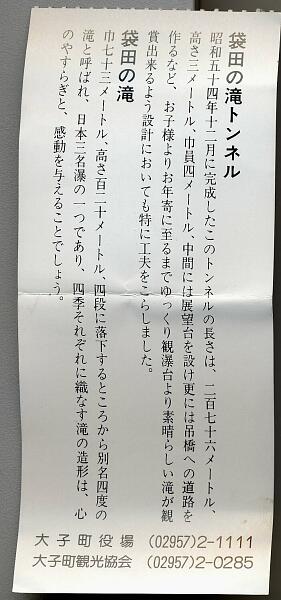 袋田の滝トンネル
昭和五十四年十二月に完成したこのトンネルの長さは、二百七十六メートル、
高さ三メートル、巾員四メートル、中間には展望台を設け更には吊橋への道路を
作るなど、お子様よりお年寄に至るまでゆっくり観瀑台より素晴らしい滝が観
賞出来るよう設計においても特に工夫をこらしました。
袋田の滝
巾七十三メートル、高さ百二十メートル、四段に落下するところから別名四度の
滝と呼ばれ、日本三名瀑の一つであり、四季それぞれに織なす滝の造形は、心
のやすらぎと、感動を与えることでしょう。
大子町役場 (02957)2-1111
大子町観光協会 (02957)2-0285